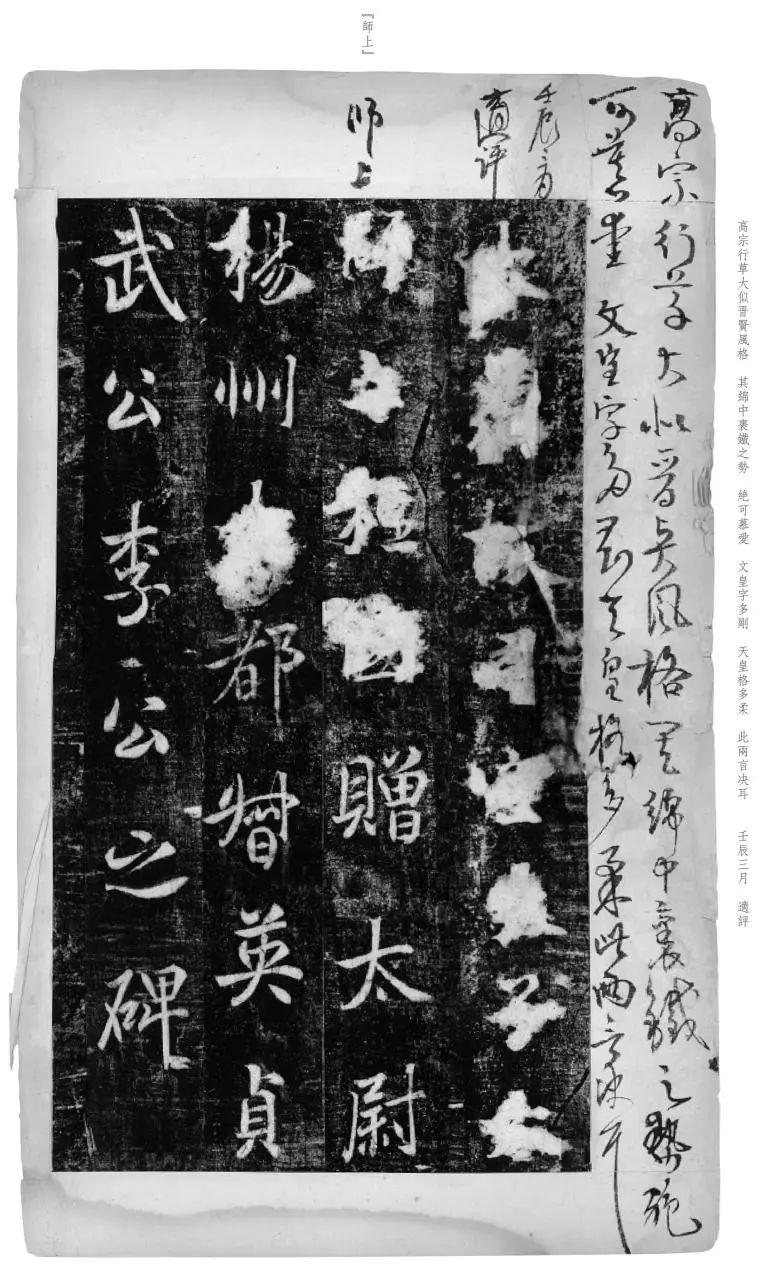 高宗行草大似晋賢風格　其綿中裹鐵之勢　絕可慕愛　文皇字多剛　天皇格多柔　此兩言决耳　壬辰三月　適評
高宗行草大似晋賢風格其綿中裹鐵之勢絕
可慕愛　文皇字多剛天皇格多柔此兩言决耳
壬辰三月
適評
『師上』
師上
大唐故司空太子太
師上柱國贈太尉
揚州都督英貞
武公李公之碑